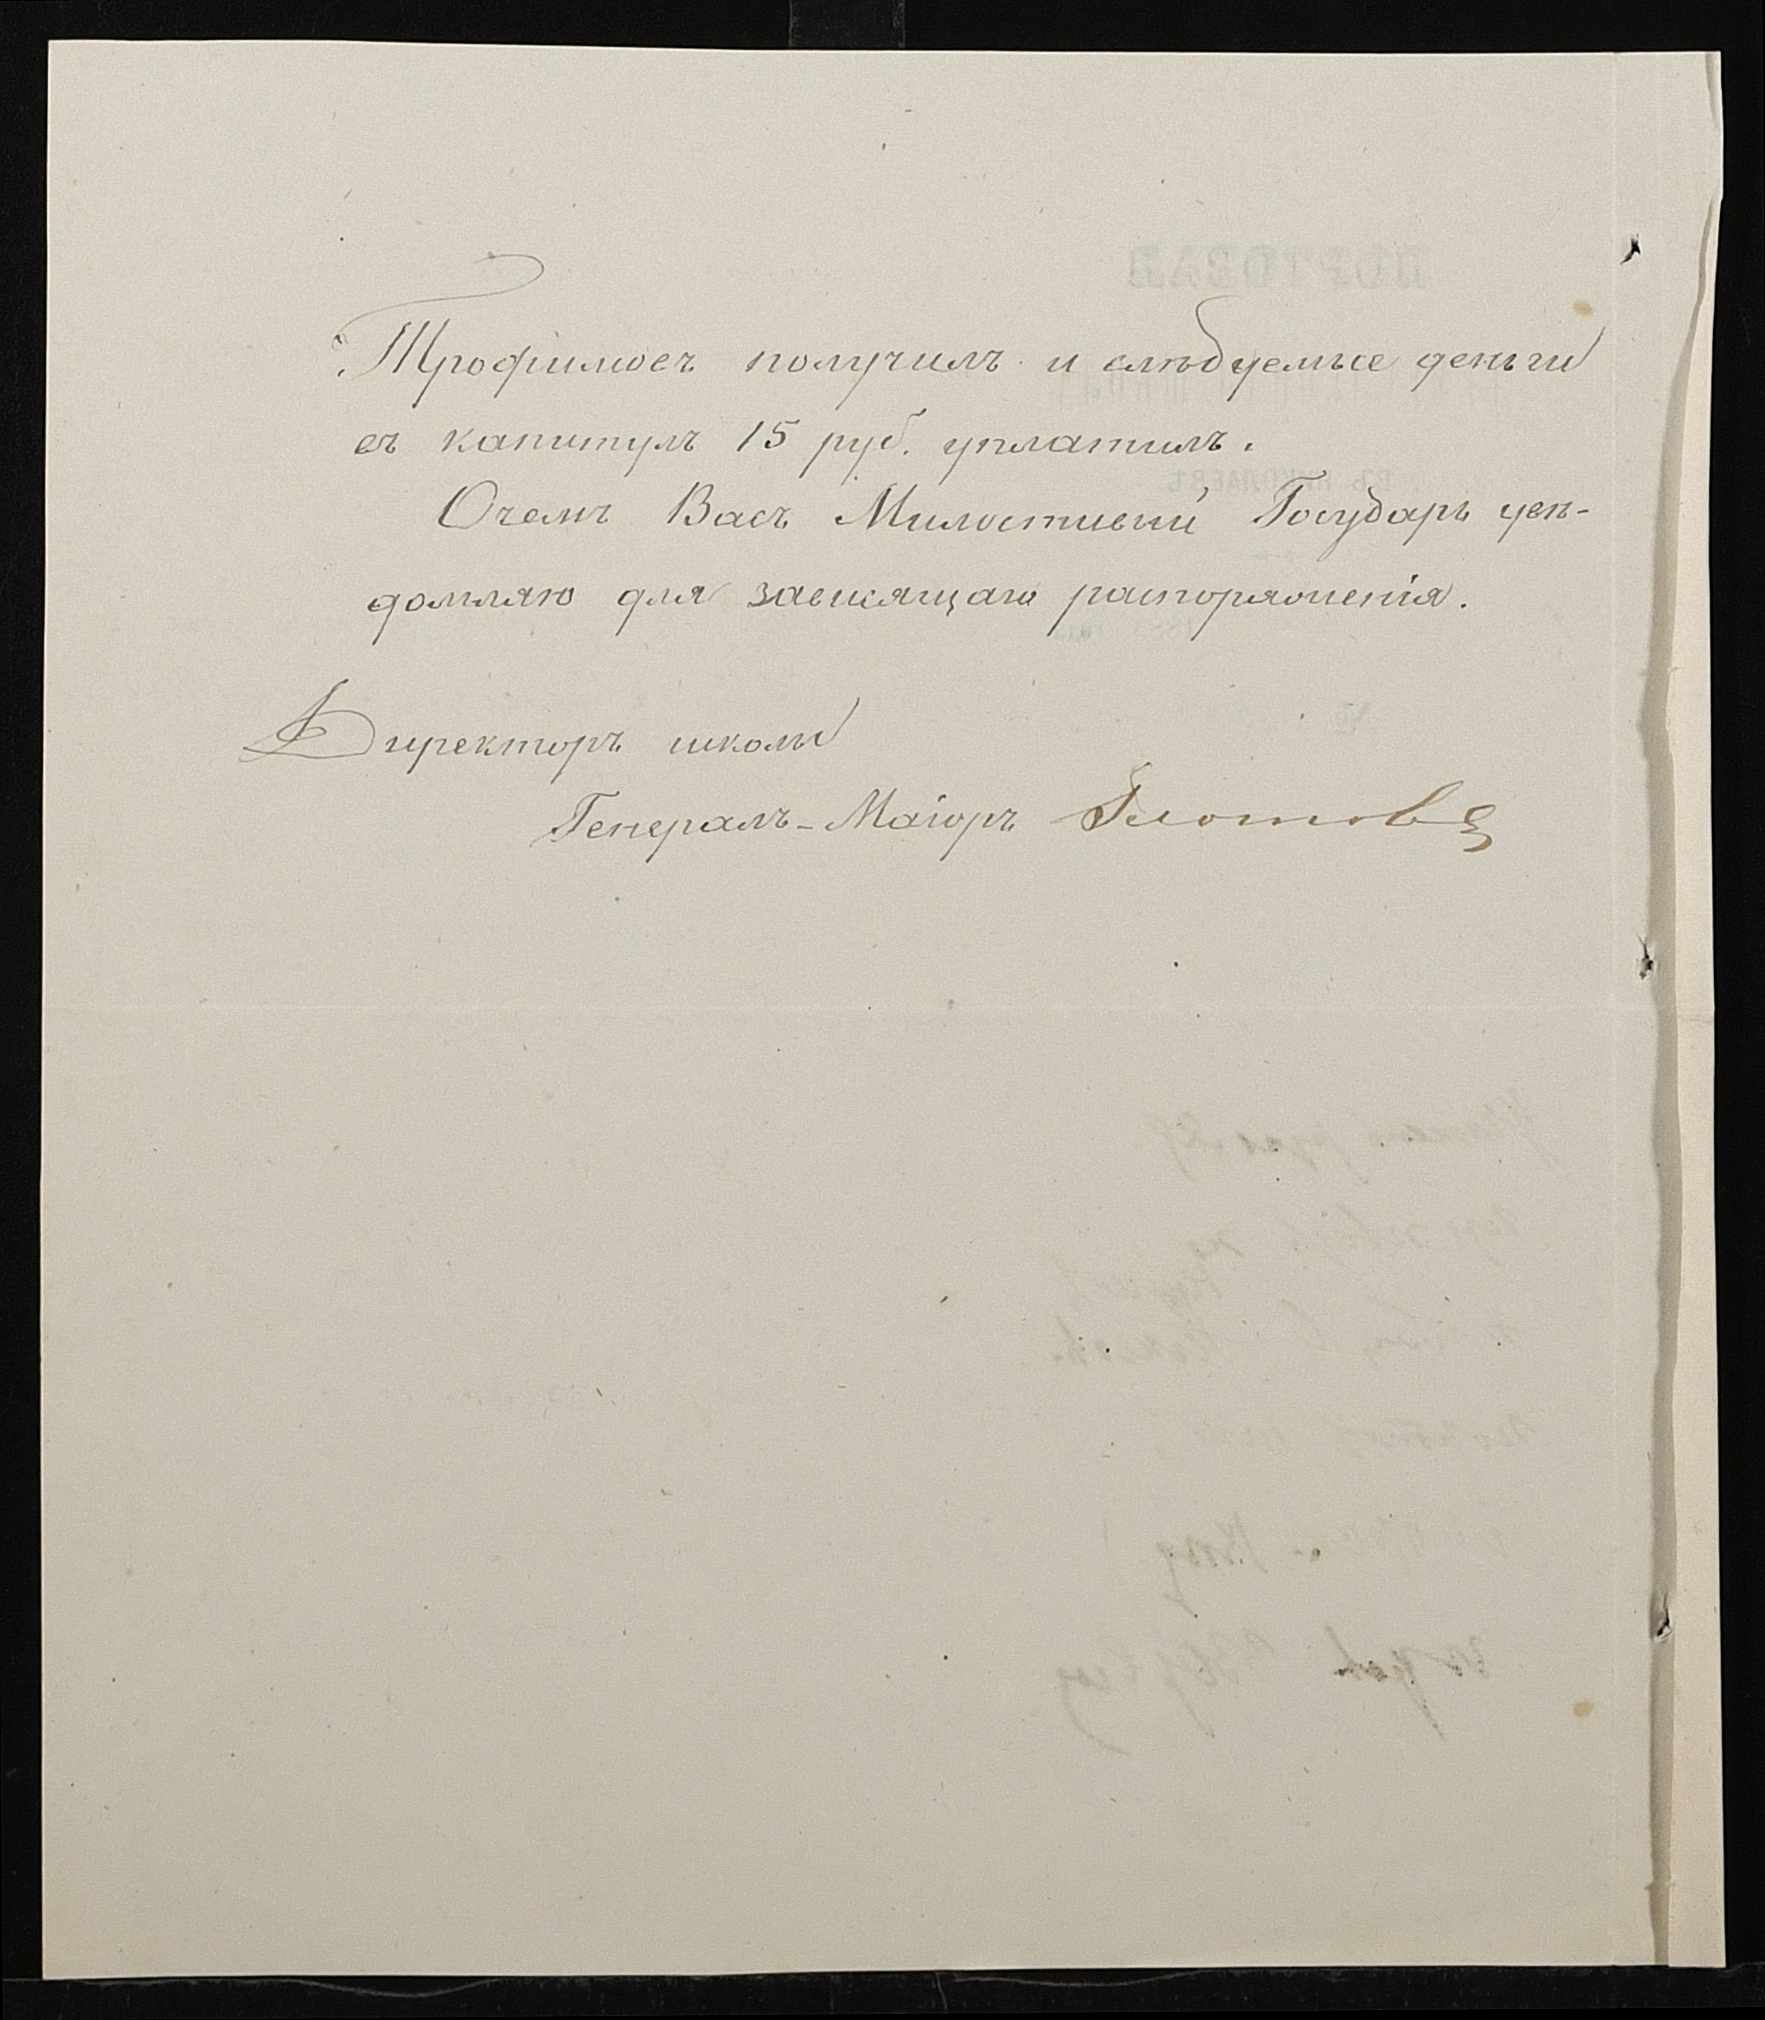 Трофимовъ получилъ и слѣдуемые деньги
въ капитулъ 15 руб. уплатилъ.
Очемъ Васъ Милостивый Государь увѣ-
домляю для зависящаго распоряженія.
Директоръ школы
Генералъ-Маіоръ